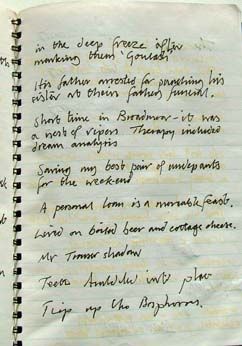 in the deep freeze after
marking them 'Goulash'
His father arrested for punching his
sister at their fathers funeral.
Short time in Broadmoor - it was
a nest of vipers. Therapy included
dream analysis
Saving my best pair of underpants
for the week-end
A personal loan is a moveable feast.
Lived on boiled beer and cottage cheese.
Mr Trouser shadow
Teeth into place
Trip up the Bosphorus.